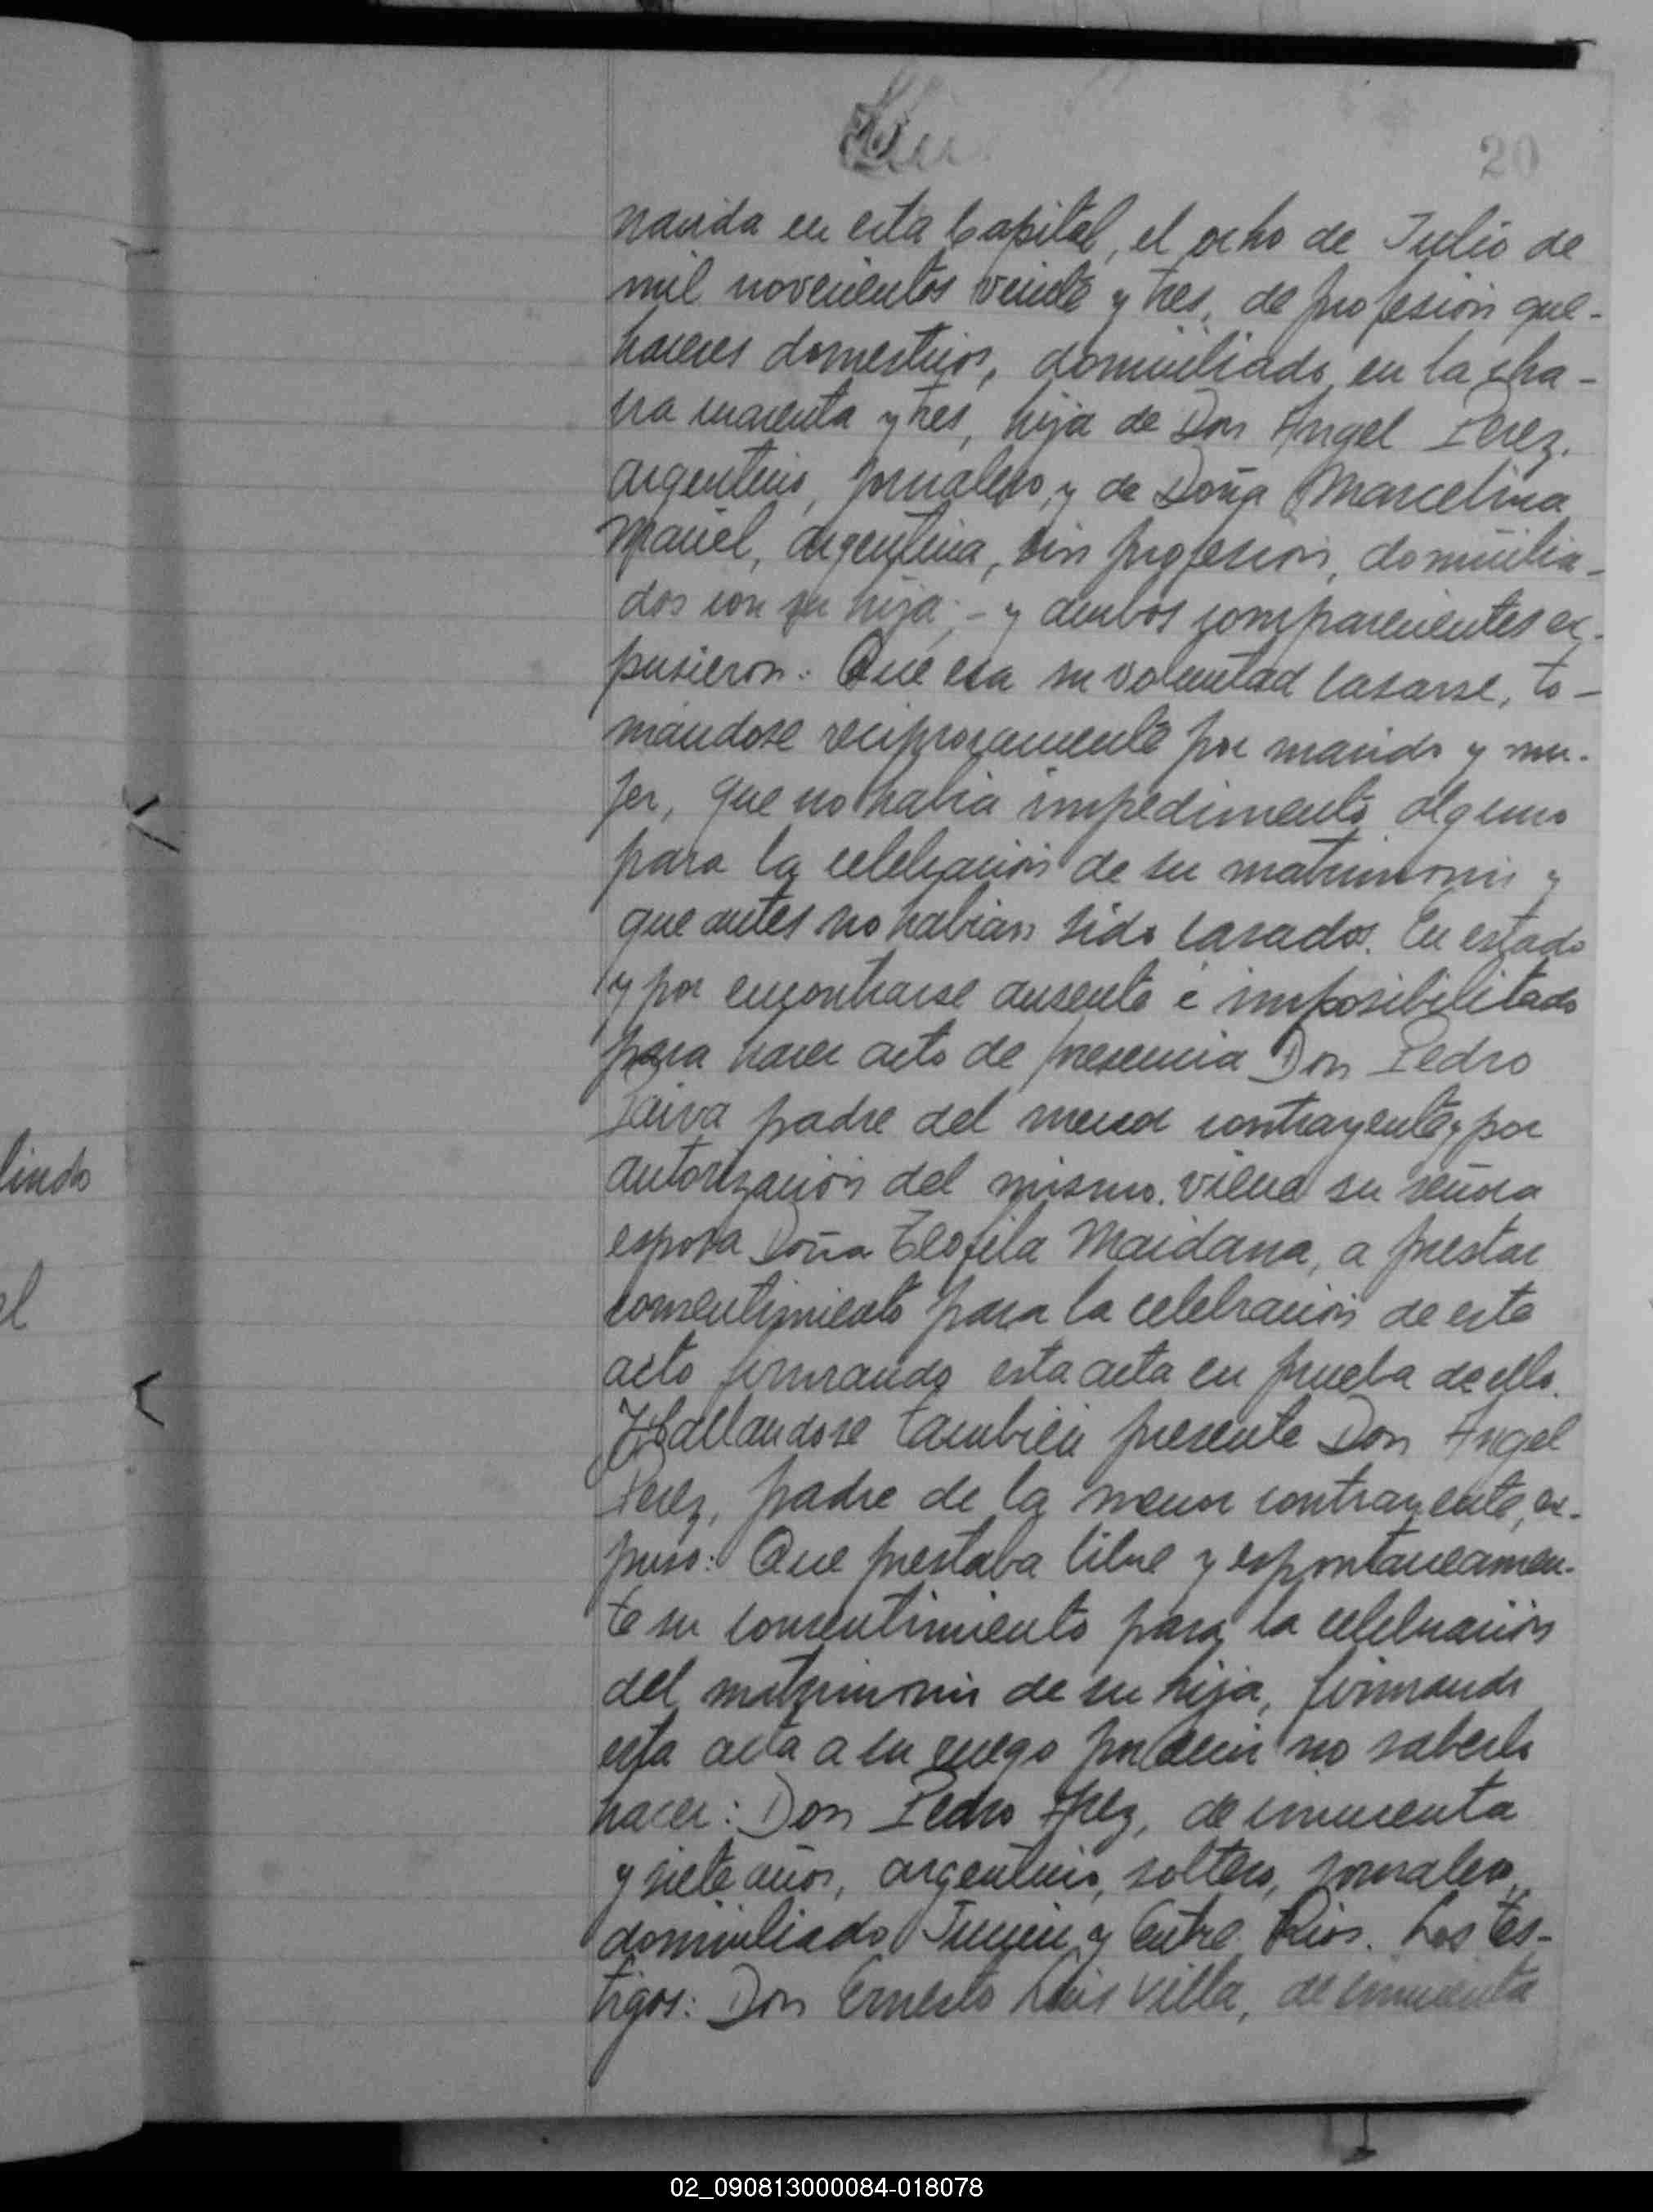 20
nacida en esta Capital, el ocho de Julio de
mil novecientos veinte y tres, de profesión que-
haceres domesticos, domiciliado en la cha-
cra cuarenta y tres, hija de Don Angel Perez,
argentino, jornalero, y de Doña Marcelina
Maciel, argentina, sin profesión, domicilia-
dos con su hija; - y ambos comparecientes ex-
pusieron: Que era su voluntad casarse, to-
mándose reciprocamente por marido y mu-
jer, que no había impedimento alguno
para la celebración de su matrimonio y
que antes no habían sido casados. En estado
y por encontrarse ausente é imposibilitado
para hacer acto de presencia Don Pedro
Paiva padre del menor contrayente, por
autorización del mismo. viene su señora
esposa Doña Teofila Maidana, a prestar
consentimiento para la celebración de este
acto firmando esta acta en prueba de ello.
Hallandose también presente Don Angel
Perez, padre de la menor contrayente, ex-
puso: Que prestaba libre y espontaneamen-
te su consentimiento para la celebración
del matrimonio de su hija, firmando
esta acta a su ruego por decir no saberlo
hacer: Don Pedro de cincuenta
y siete años, argentino, soltero, jornalero,
domiciliado Junin y Entre Rios. Los tes-
tigos: Don Ernesto Luis Villa, de cincuenta
lindo
el
02_090813000084-018078